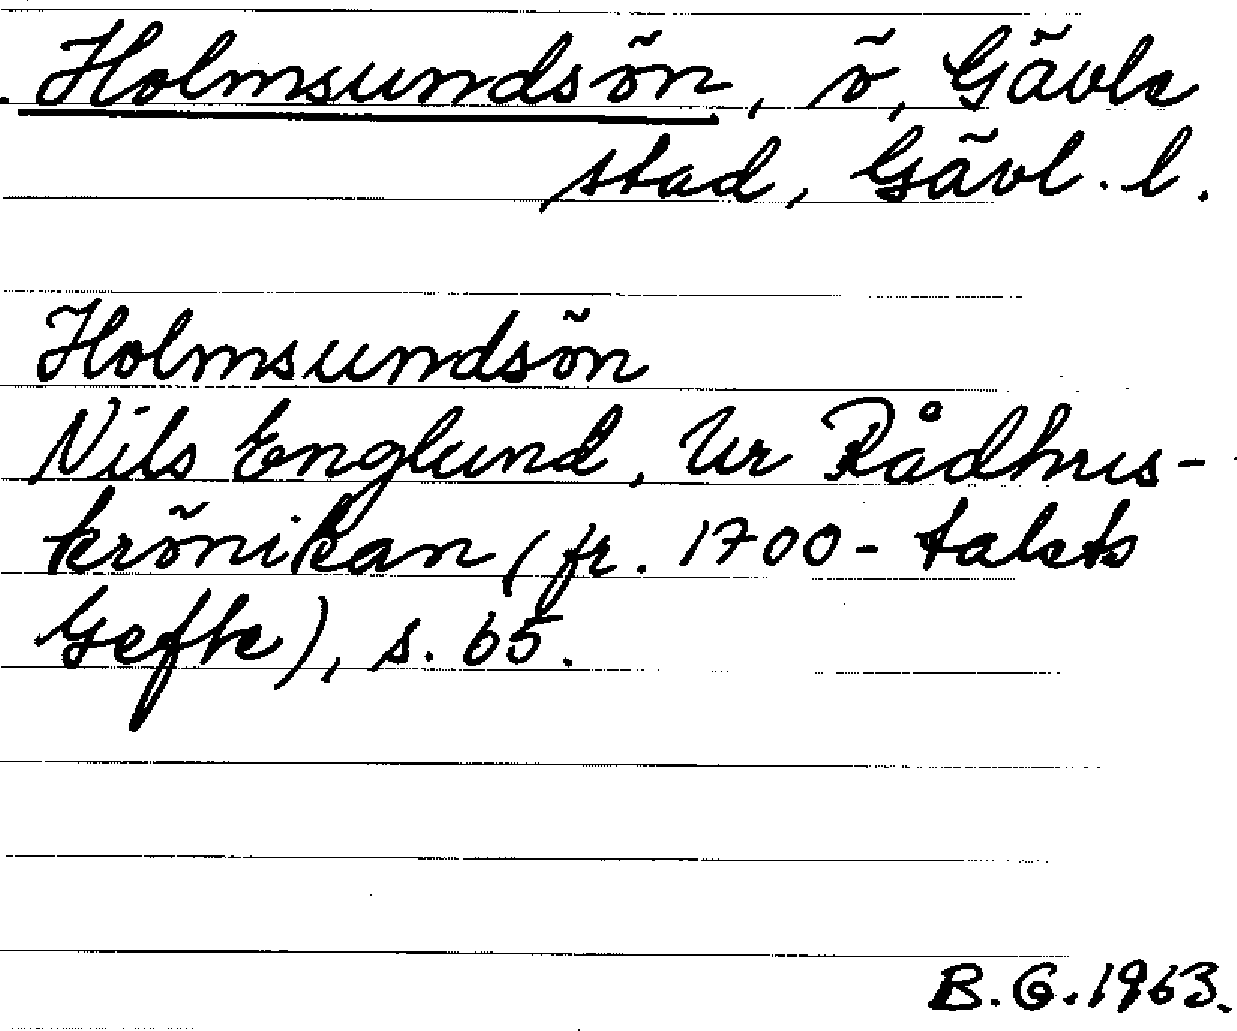 Holmsundsön, ö, Gävle
stad, Gävl. l.
Holmsundsön
Nils Englund, Ur Rådhus-
krönikan (fr. 1700-talets
Gefle), s. 65.
B.G. 1963.